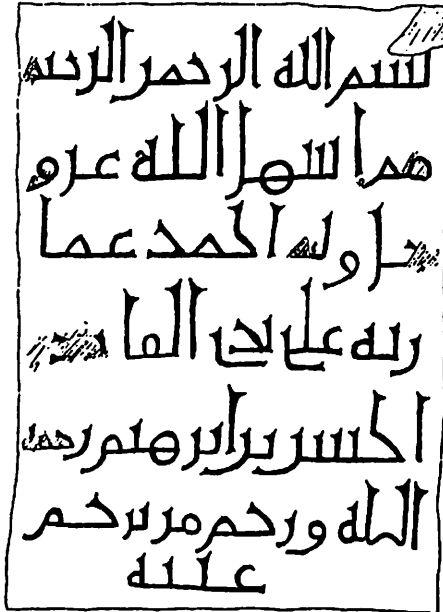 بسم الله الرحمن الرحيم
مما سهل الله عز و
جل وله الحمد عما
رته على يدي القا
الحسن بن ابرهيم رحمه
الله ورحم من ترحم
عليه